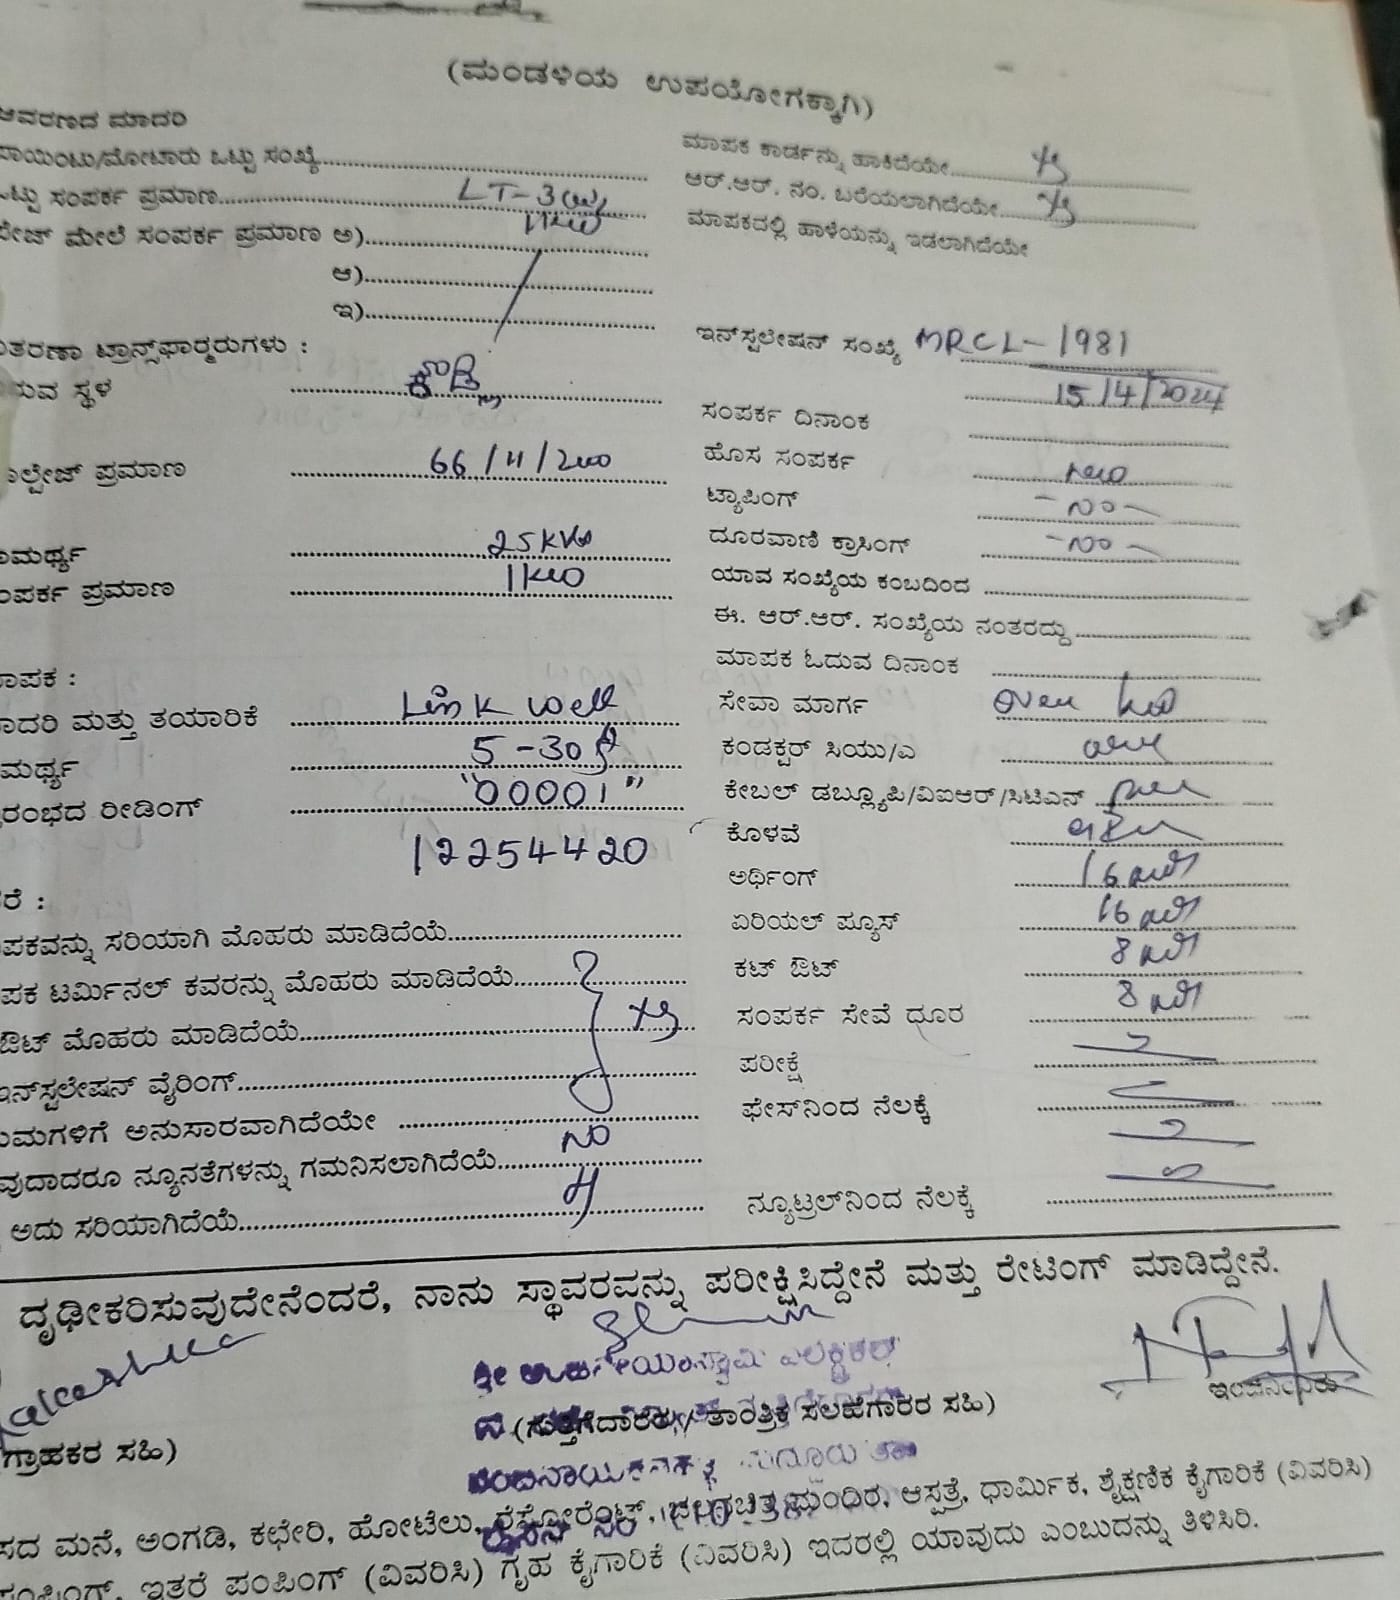 (ಮಂಡಳಿಯ ಉಪಯೋಗಕ್ಕಾಗಿ)
ಆವರಣದ ಮಾದರಿ
ಪಾಯಿಂಟು/ಮೋಟಾರು ಒಟ್ಟು ಸಂಖ್ಯೆ
ಒಟ್ಟು ಸಂಪರ್ಕ ಪ್ರಮಾಣ LT-3
ಪೇಜ್ ಮೇಲೆ ಸಂಪರ್ಕ ಪ್ರಮಾಣ ಅ) 1KW
ಆ)
ಇ)
ತರಣಾ ಟ್ರಾನ್ಸ್‌ಫಾರ್‍ಮರುಗಳು :
ರುವ ಸ್ಥಳ
ಲ್ಟೇಜ್ ಪ್ರಮಾಣ 66/11/200
ಾಮರ್ಥ್ಯ 25KVA
ಂಪರ್ಕ ಪ್ರಮಾಣ 1KW
ಾಪಕ :
ಾದರಿ ಮತ್ತು ತಯಾರಿಕೆ Link well
ಮರ್ಥ್ಯ 5-30A
ರಂಭದ ರೀಡಿಂಗ್ "00001"
12254420
ರೆ :
ಪಕವನ್ನು ಸರಿಯಾಗಿ ಮೊಹರು ಮಾಡಿದೆಯೆ
ಪಕ ಟರ್ಮಿನಲ್ ಕವರನ್ನು ಮೊಹರು ಮಾಡಿದೆಯೆ
ಔಟ್ ಮೊಹರು ಮಾಡಿದೆಯೆ
ಇನ್‌ಸ್ಟಲೇಷನ್ ವೈರಿಂಗ್
ಯಮಗಳಿಗೆ ಅನುಸಾರವಾಗಿದೆಯೇ
ವುದಾದರೂ ನ್ಯೂನತೆಗಳನ್ನು ಗಮನಿಸಲಾಗಿದೆಯೆ NO
ಅದು ಸರಿಯಾಗಿದೆಯೆ
ಮಾಪಕ ಕಾರ್ಡನ್ನು ಹಾಕಿದೆಯೇ
ಆರ್.ಆರ್. ನಂ. ಬರೆಯಲಾಗಿದೆಯೇ
ಮಾಪಕದಲ್ಲಿ ಹಾಳೆಯನ್ನು ಇಡಲಾಗಿದೆಯೇ
ಇನ್‌ಸ್ಟಲೇಷನ್ ಸಂಖ್ಯೆ MRCL-1981
15/4/2024
ಸಂಪರ್ಕ ದಿನಾಂಕ
ಹೊಸ ಸಂಪರ್ಕ New
ಟ್ಯಾಪಿಂಗ್ -NO-
ದೂರವಾಣಿ ಕ್ರಾಸಿಂಗ್ -NO-
ಯಾವ ಸಂಖ್ಯೆಯ ಕಂಬದಿಂದ
ಈ. ಆರ್.ಆರ್. ಸಂಖ್ಯೆಯ ನಂತರದ್ದು
ಮಾಪಕ ಓದುವ ದಿನಾಂಕ
ಸೇವಾ ಮಾರ್ಗ over
ಕಂಡಕ್ಟರ್ ಸಿಯು/ಎ
ಕೇಬಲ್ ಡಬ್ಲ್ಯೂಪಿ/ವಿಐಆರ್/ಸಿಟಿಎಸ್
ಕೊಳವೆ
ಅರ್ಥಿಂಗ್ 16
ಏರಿಯಲ್ ಪ್ಯೂಸ್ 16
ಕಟ್ ಔಟ್ 8
ಸಂಪರ್ಕ ಸೇವೆ ಧೂರ 8
ಪರೀಕ್ಷೆ
ಫೇಸ್‌ನಿಂದ ನೆಲಕ್ಕೆ
ನ್ಯೂಟ್ರಲ್‌ನಿಂದ ನೆಲಕ್ಕೆ
ದೃಢೀಕರಿಸುವುದೇನೆಂದರೆ, ನಾನು ಸ್ಥಾವರವನ್ನು ಪರೀಕ್ಷಿಸಿದ್ದೇನೆ ಮತ್ತು ರೇಟಿಂಗ್ ಮಾಡಿದ್ದೇನೆ.
(ಗುತ್ತಿಗೆದಾರರು/ ತಾಂತ್ರಿಕ ಸಲಹೆಗಾರರ ಸಹಿ)
ಗ್ರಾಹಕರ ಸಹಿ)
ಸದ ಮನೆ, ಅಂಗಡಿ, ಕಛೇರಿ, ಹೋಟೆಲು, ರೆಸ್ಟೋರೆಂಟ್, ಚಲನಚಿತ್ರ ಮಂದಿರ, ಆಸ್ಪತ್ರೆ, ಧಾರ್ಮಿಕ, ಶೈಕ್ಷಣಿಕ ಕೈಗಾರಿಕೆ (ವಿವರಿಸಿ)
ಇತರೆ ಪಂಪಿಂಗ್ (ವಿವರಿಸಿ) ಗೃಹ ಕೈಗಾರಿಕೆ (ವಿವರಿಸಿ) ಇದರಲ್ಲಿ ಯಾವುದು ಎಂಬುದನ್ನು ತಿಳಿಸಿರಿ.